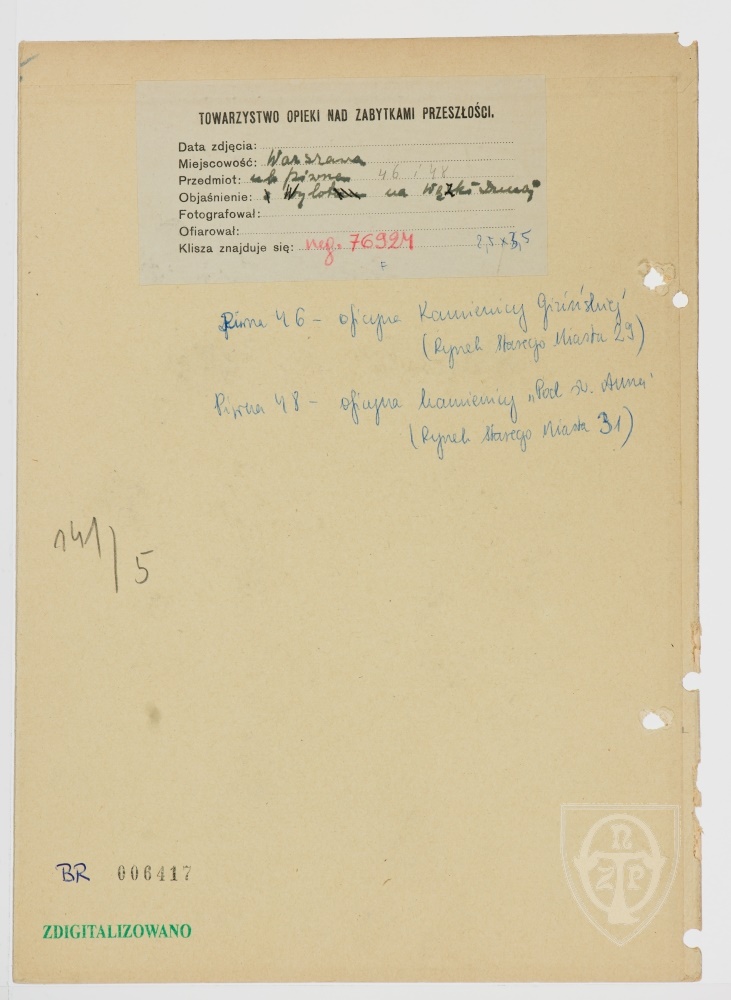 TOWARZYSTWO OPIEKI NAD ZABYTKAMI PRZESZŁOŚCI.
Data zdjęcia:
Miejscowość: Warszawa
Przedmiot: ul. piwna 46 i 48
Objaśnienie: Wylot na Wązki Dunaj
Fotografował:
Ofiarował:
Klisza znajduje się: neg. 76924 2,5 x 3,5
F
Piwna 46 - oficyna Kamienicy
(Rynek Starego Miasta 29)
Piwna 48 - oficyna kamienicy „Pod św. Anną"
(Rynek Starego Miasta 31)
141/5
BR 006417
ZDIGITALIZOWANO
TOnZP